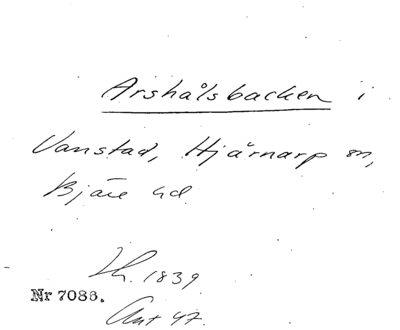 Arshålsbacken i
Vanstad, Hjärnarp sn,
Bjäre hd
Lh. 1839
Nr 7086.
Ant 47.